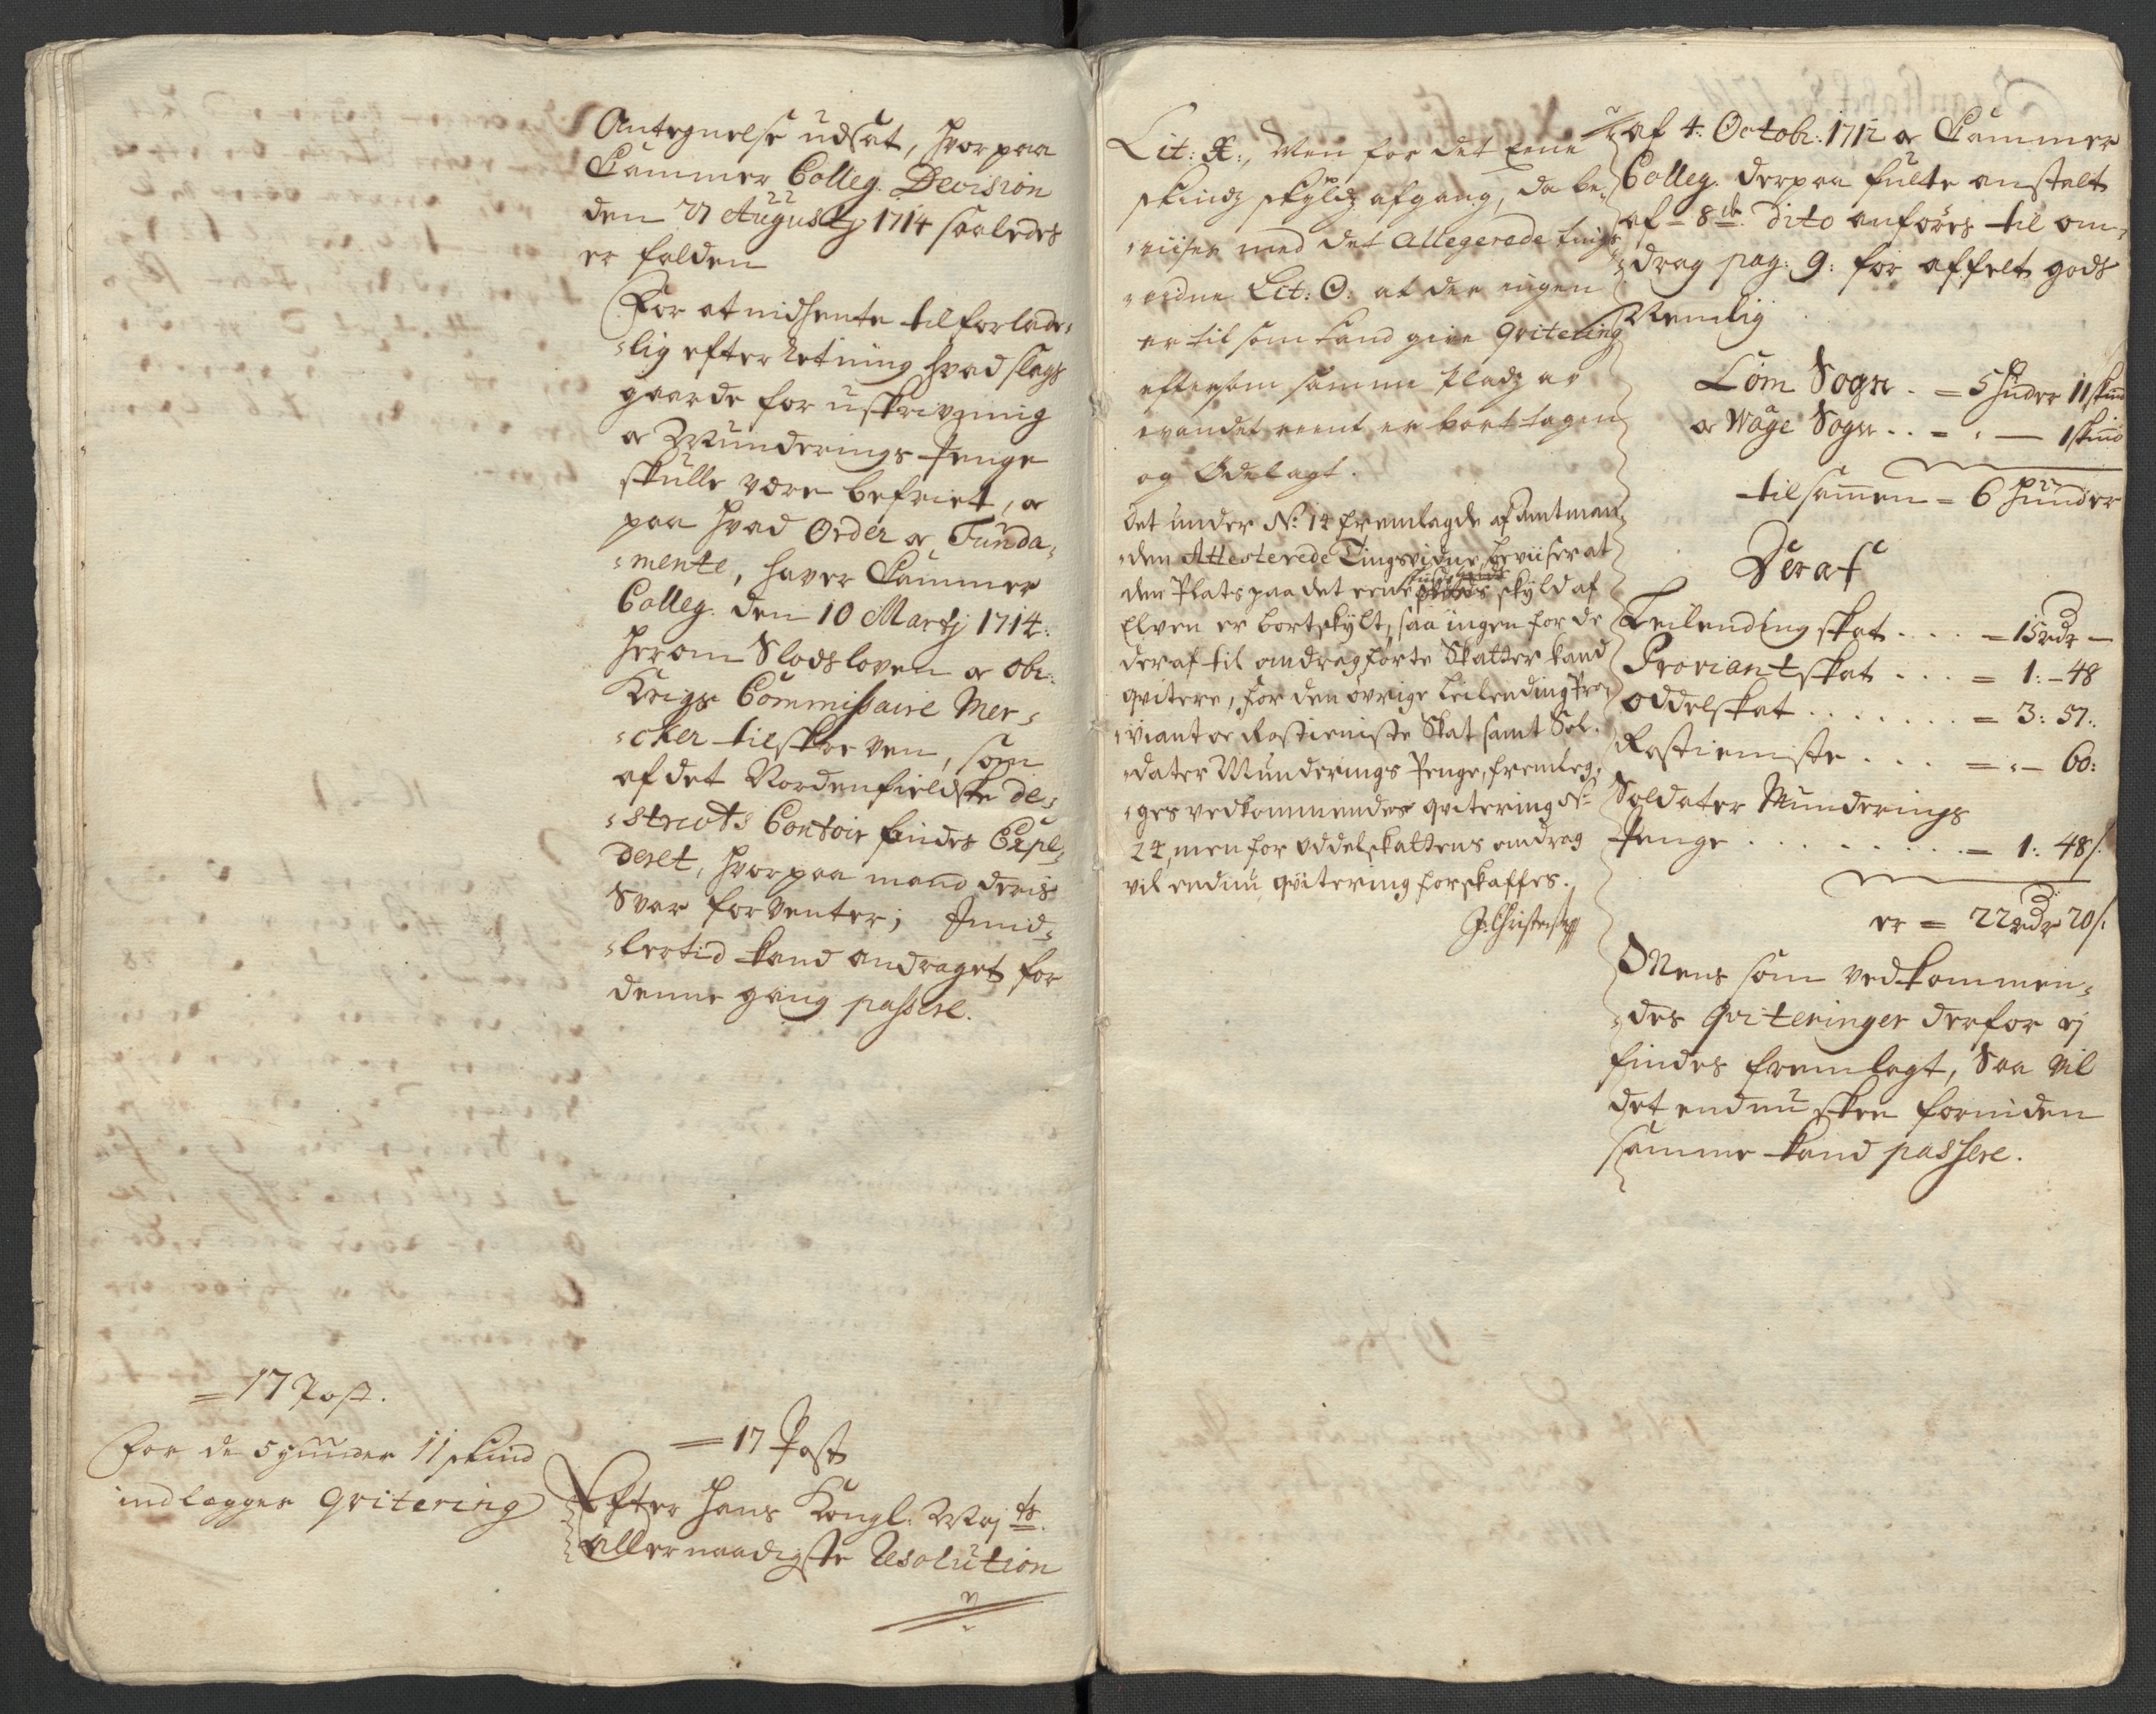 Antegnelse udsat, hvorpaa
Cammer Colleg. Decision
den 22 Augustj 1714 saaledes
er falden
For at indhente tilforlade-
-lig efterretning hvad slags
gaarde for udskrivning
og Munderings Penge
skulle være befriet, og
paa hvad Order og Funda-
-mente, haver Cammer
Colleg. den 10 Martj 1714:
herom Slodsloven og Obr:
Krigs Commissaire Mer-
-cker tilskreven, som
af det Nordenfieldske De-
-stricts Contoir findes Expe-
deret, hvorpaa mand deris
Svar forventer; Imid-
-lertid kand andraget for
denne gang passere.
= 17 Post.
For de 5 Huuder 11 skind
indlegges qvitering
= 17 Post
Efter Hans Kongl: Maj ts.
allernaadigste Resolution
Lit: X:, Men for det Eene
skindz skyldz afgang, da be-
-viises med det allegerede tings
-vidne Lit: O: at der ingen
er til som kand give qvitering
eftersom samme Pladz av
vandet reent er bort tagen
og Ødelagt.
Det under No: 14 fremlagde af Amtman-
-den Attesterede Tingsvidne beviiser at
den Plats paa det eene skinds skyld af
Elven er bortskylt, saa ingen for de
deraf til andrag førte Skatter kand
qvitere, for den øvrige Leilending Pro-
-viant og Rostieniste Skat samt Sol-
-dater Munderings Penge, fremleg-
-ges vedkommendes qvitering No
24, men for Oddelskattens andrag
vil endnu qvitering forskaffes.
J. Christensen
af 4. Octobr: 1712 og Cammer
Colleg. derpaa fulte anstalt
af 8de dito anføres til an-
-drag pag: 9: for affelt gods
Nemlig
Lom Sogn . = 5 Huder 11 skind
og Wage Sogn . . = . — 1 skind
tilsamen = 6 Hunder
Deraf
Leilending skat . . . . = 15 rdr —
Proviantskat . . . = 1: – 48
Oddelskat . . . . . . = 3: 57:
Rostieniste . . . . = : – 60:
Soldater Munderings
Penge . . . . . . . . = 1: 48 s.
er = 22 rdr 20 s.
Mens som vedkommen-
-des Qviteringer derfor ej
findes fremlagt, saa vil
det endnu skee forinden
samme kand passere.